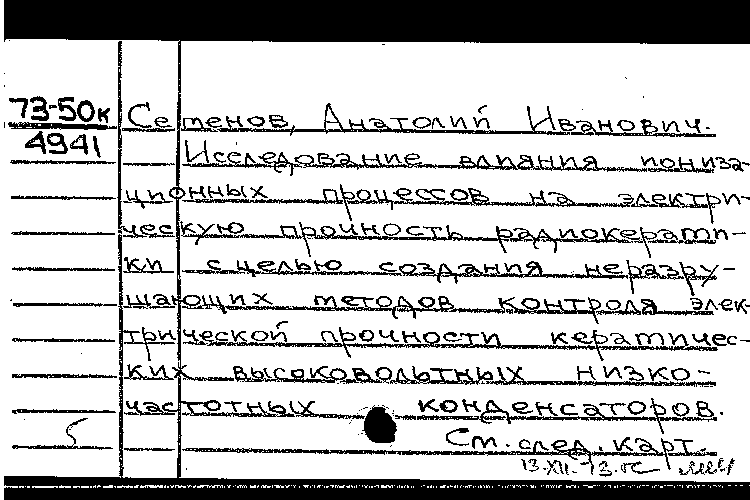 73-50к
4941
Семенов, Анатолий Иванович.
Исследование влияния иониза-
ционных процессов на электри-
ческую прочность радиокерами-
ки с целью создания неразру-
шающих методов контроля элек-
трической прочности керамичес-
ких высоковольтных низко-
частотных конденсаторов.
См. след. карт.
13.XII-73.